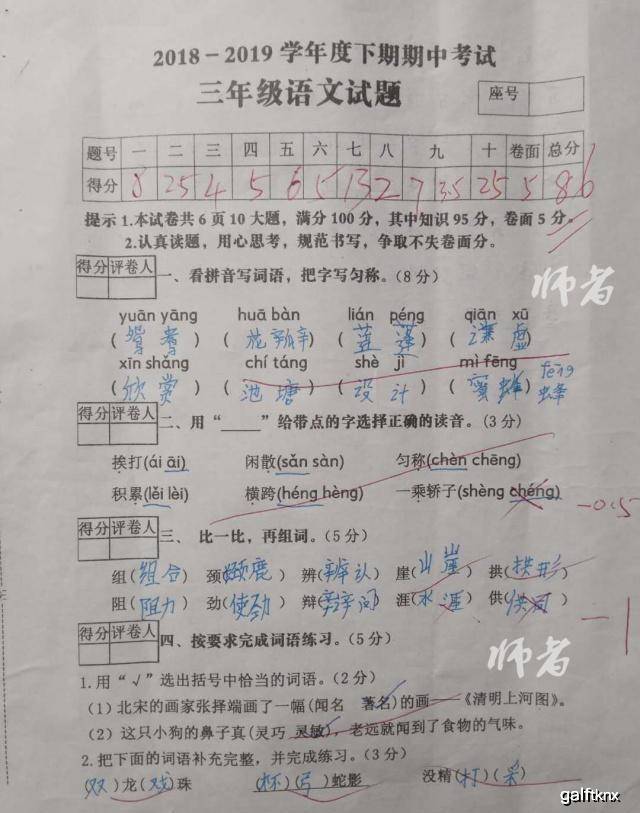 2018-2019学年度下期期中考试
三年级语文试题
座号
题号 一 二 三 四 五 六 七 八 九 十 卷面 总分
得分 8 25 4 5 6 5 13 2 7 3.5 25 5 86
提示 1.本试卷共6页10大题，满分100分，其中知识95分，卷面5分。
2.认真读题，用心思考，规范书写，争取不失卷面分。
得分 评卷人
一、看拼音写词语，把字写匀称。(8分)
师者
yuān yāng huā bàn lián péng qiān xū
(鸳鸯) (花瓣) (莲蓬) (谦虚)
xīn shǎng chí táng shè jì mì fēng
(欣赏) (池塘) (设计) (蜜蜂) fēng 蜂
得分 评卷人
二、用“____”给带点的字选择正确的读音。(3分)
挨打(ái āi) 闲散(sǎn sàn) 匀称(chèn chēng)
积累(lěi lèi) 横跨(héng hèng) 一乘轿子(shèng chéng) -0.5
得分 评卷人
三、 比一比，再组词。(5分)
组(组合) 颈( 鹿) 辨(辨认) 崖(山崖) 拱(拱形)
阻(阻力) 劲(使劲) 辩( ) 涯(水涯) 供( ) -1
得分 评卷人
四、按要求完成词语练习。(5分)
师者
1.用“√”选出括号中恰当的词语。(2分)
(1)北宋的画家张择端画了一幅(闻名 著名)的画——《清明上河图》。
(2)这只小狗的鼻子真(灵巧 灵敏)，老远就闻到了食物的气味。
2.把下面的词语补充完整，并完成练习。(3分)
(双)龙(戏)珠 (杯)(弓)蛇影 没精(打)(采)
galftknx